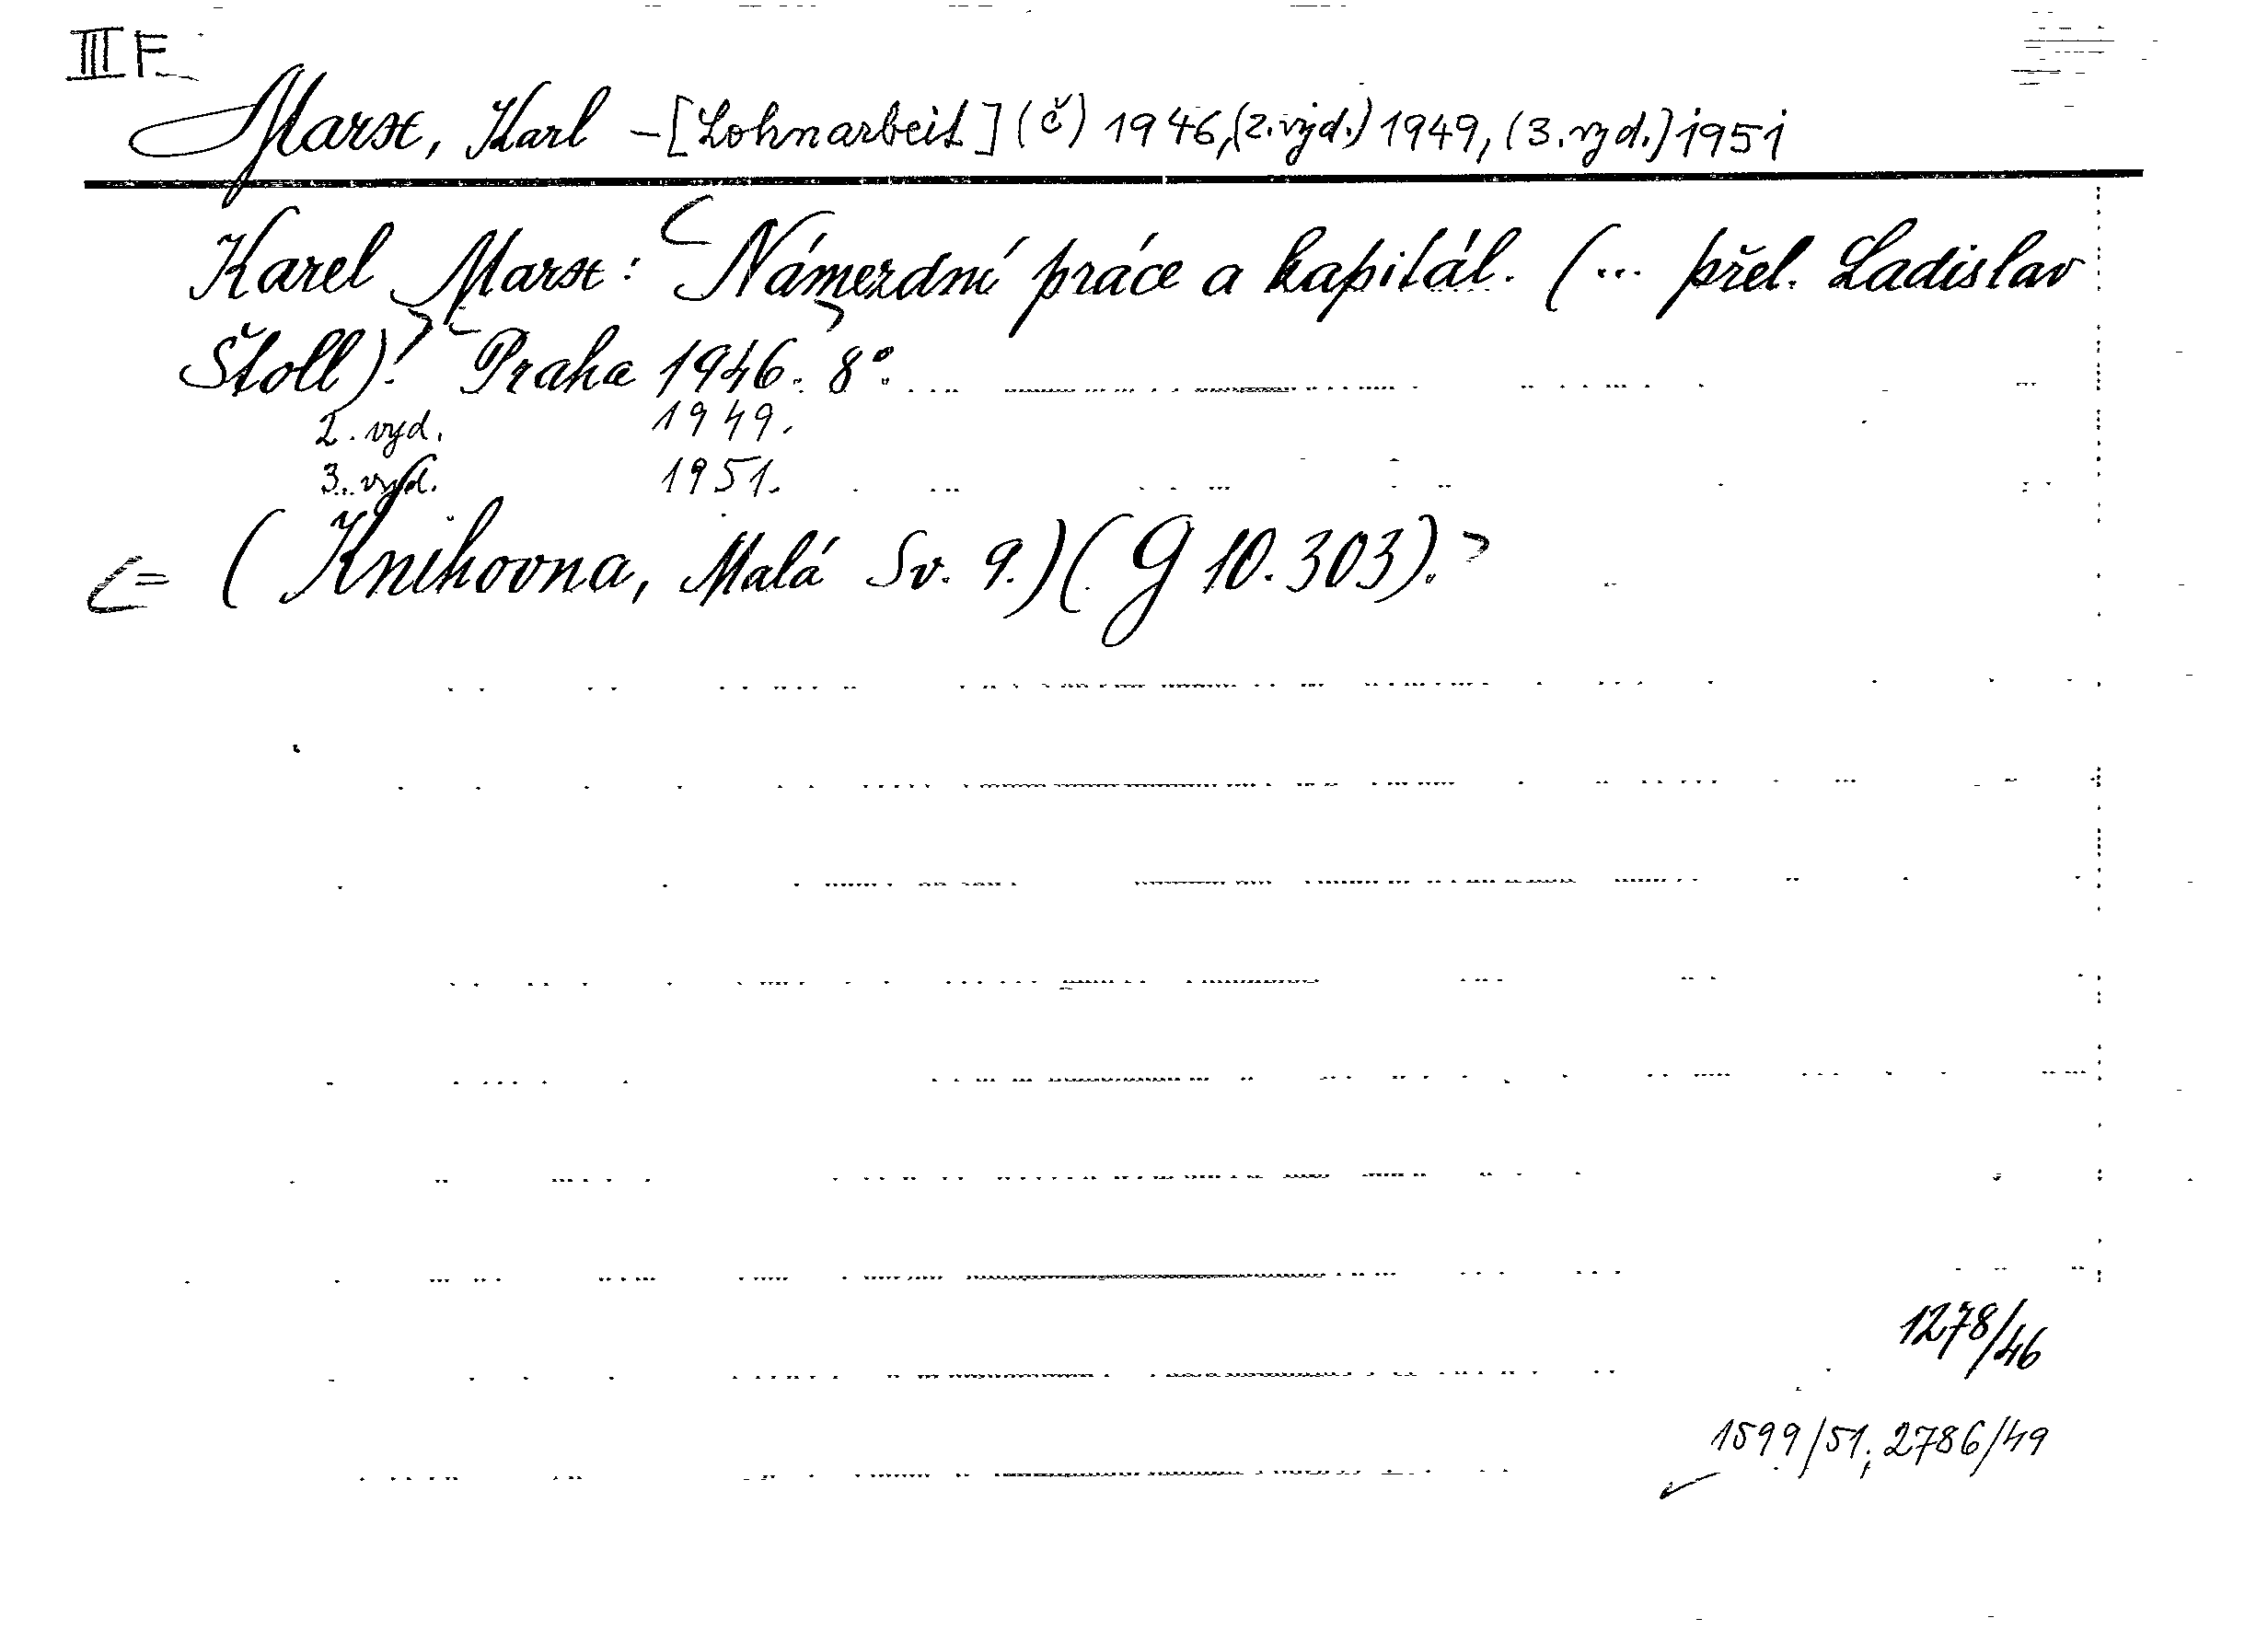 III F
Marx, Karl - [Lohnarbeit] (č) 1946, (2. vyd.) 1949, (3. vyd.) 1951
Karel Marx: Námezdní práce a kapitál. (... přel. Ladislav
Štoll). Praha 1946. 8°.
2. vyd. 1949.
3. vyd. 1951.
= (Knihovna, Malá Sv. 9.) (G 10.303).
1278/46
1599/51; 2786/49